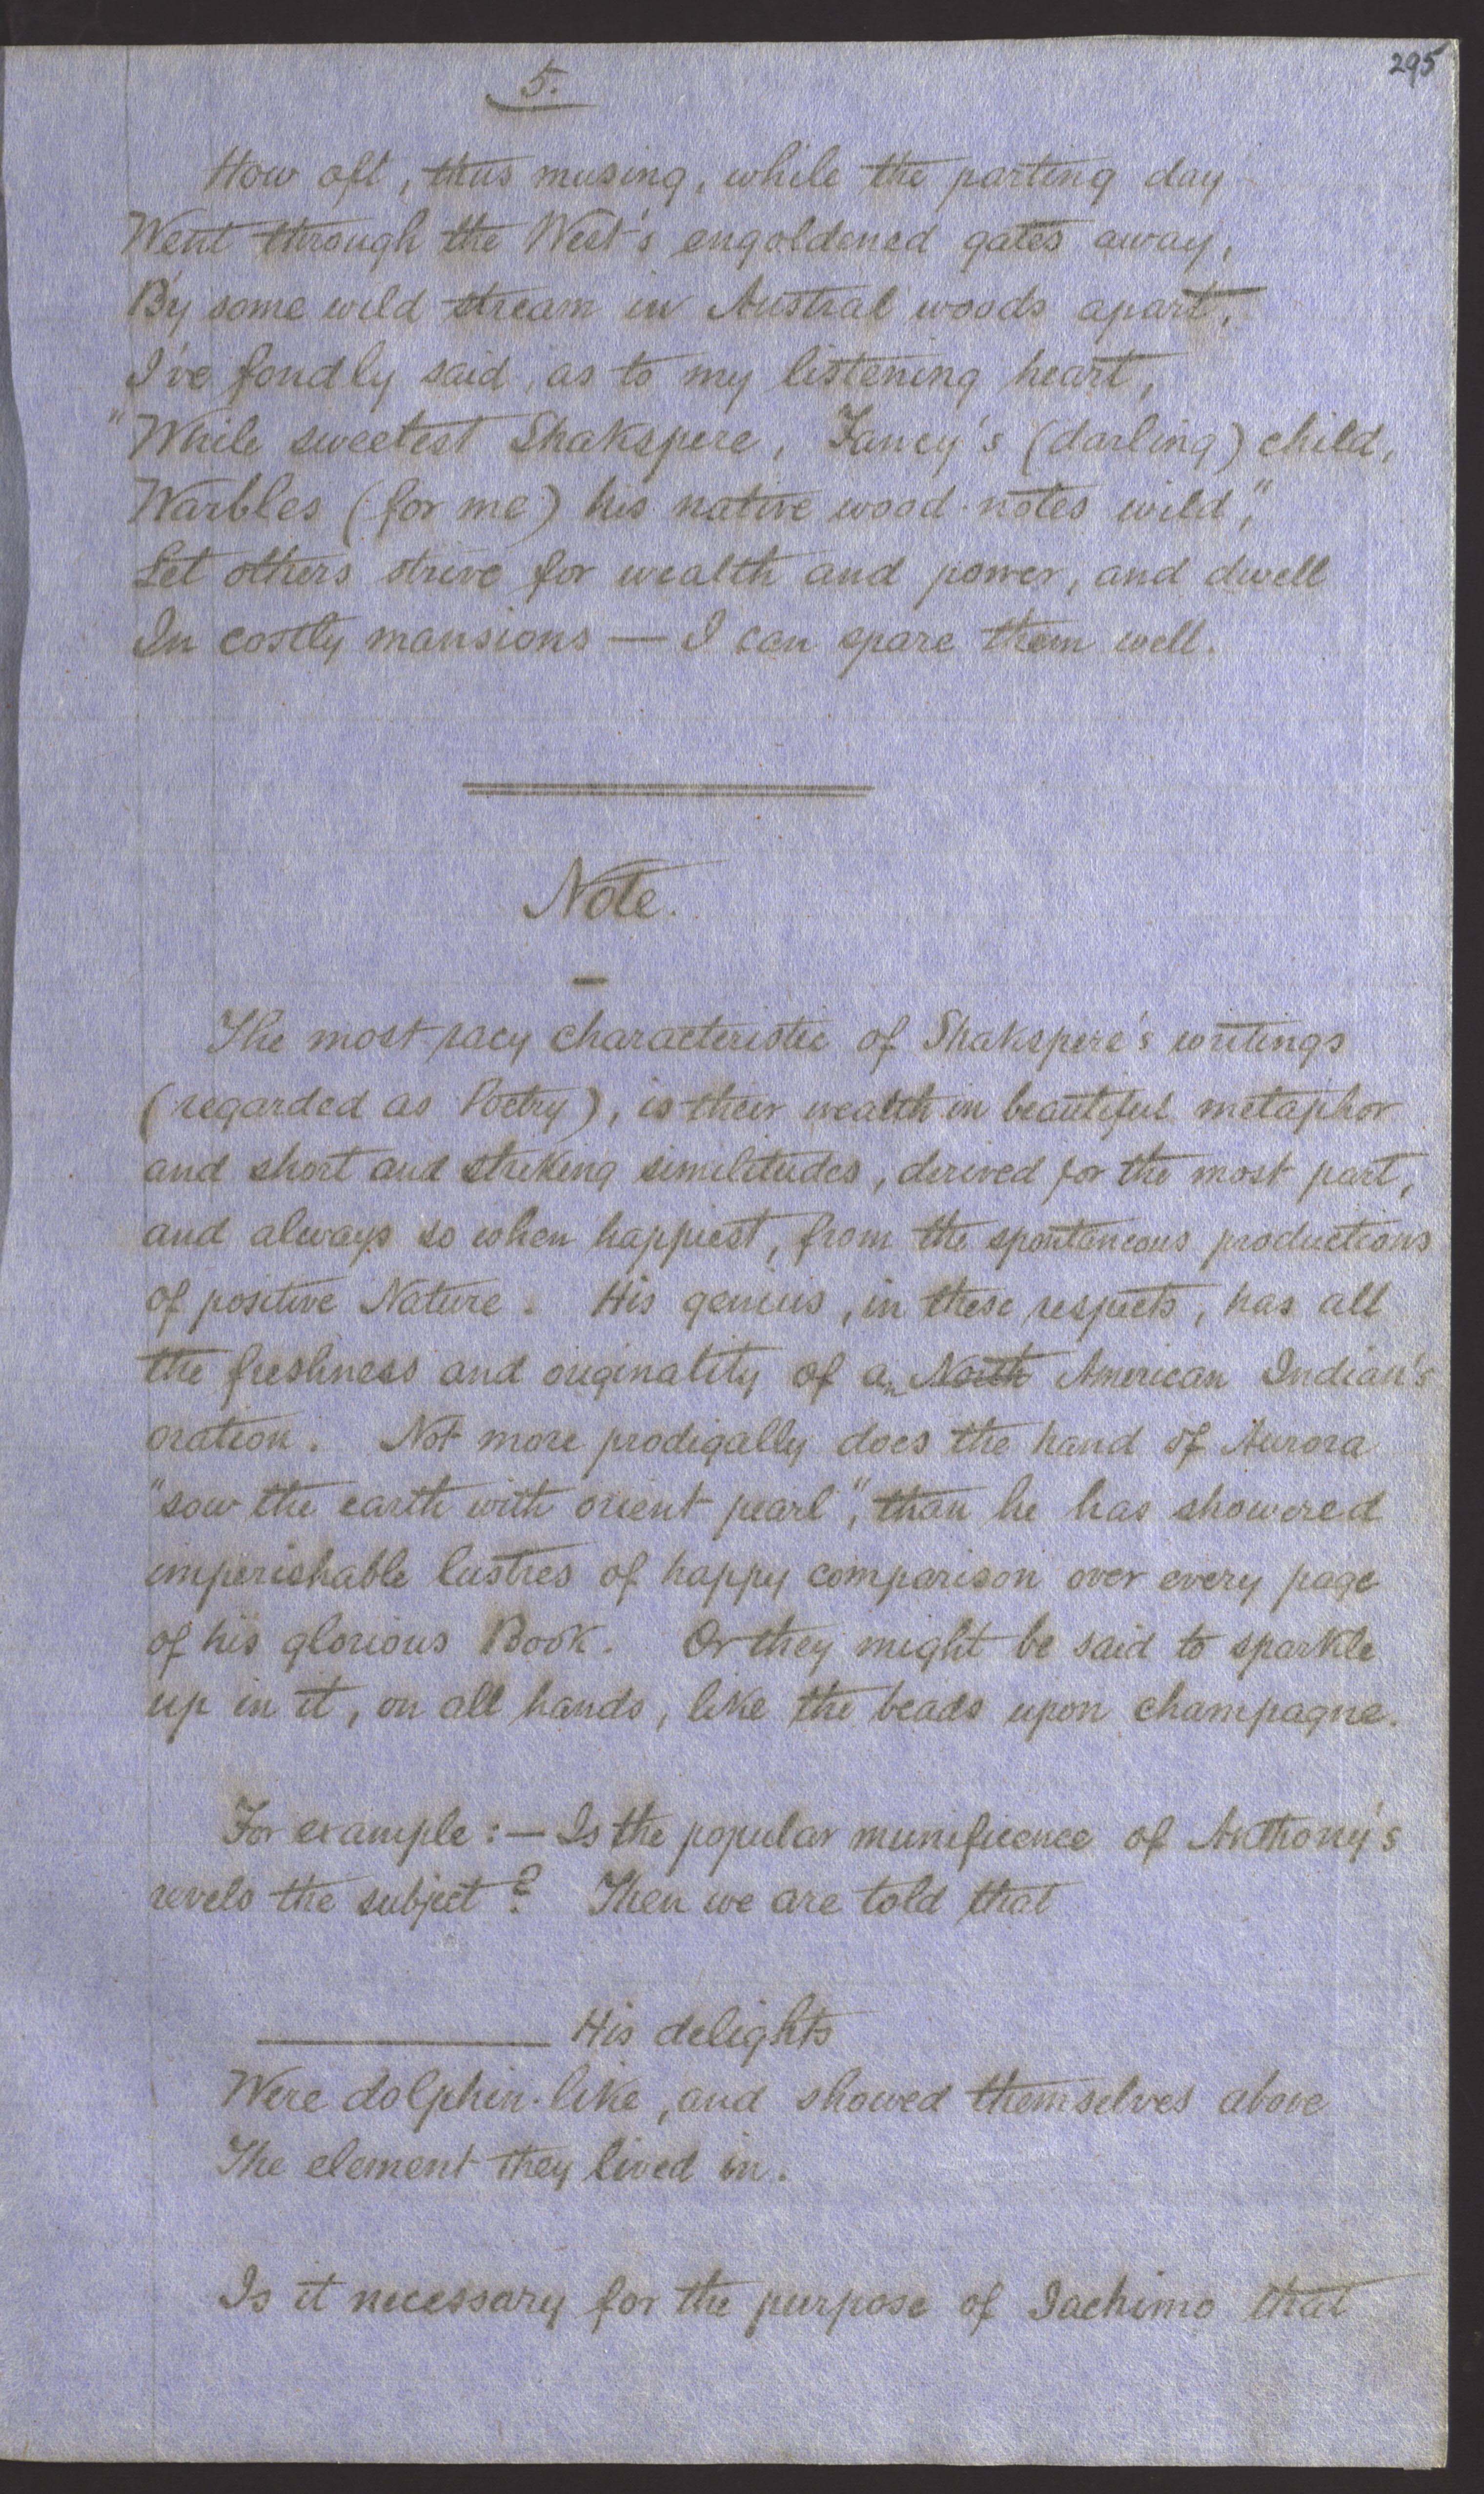 295
5.
How oft, thus musing, while the parting day
Went through the West's engoldened gates away,
By some wild stream in Austral woods apart,
I've fondly said, as to my listening heart,
"While sweetest Shakspere, Fancy's (darling) child,
Warbles (for me) his native wood-notes wild",
Let others strive for wealth and power, and dwell
In costly mansions — I can spare them well.
Note.
The most racy characteristic of Shakspere's writings
(regarded as Poetry), is their wealth in beautiful metaphor
and short and striking similitudes, derived for the most part,
and always so when happiest, from the spontaneous productions
of positive Nature. His genius, in these respects, has all
the freshness and originality of an North American Indian's
oration. Not more prodigally does the hand of Aurora
"sow the earth with orient pearl", than he has showered
imperishable lustres of happy comparison over every page
of his glorious Book. Or they might be said to sparkle
up in it, on all hands, like the beads upon champagne.
For example: — Is the popular munificence of Anthony's
revels the subject? Then we are told that
His delights
Were dolphin-like, and showed themselves above
The element they lived in.
Is it necessary for the purpose of Iachimo that